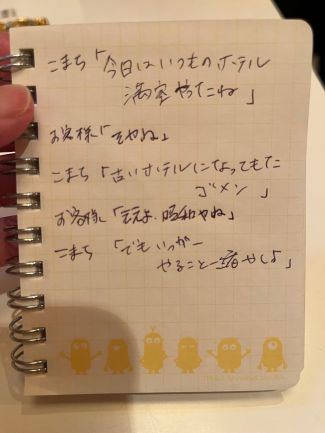 こまち「今日はいつものホテル
満室やったね」
お客様「そやね」
こまち「古いホテルになってもた
ゴメン」
お客様「ええよ、昭和やね」
こまち「でもいっかー
やること一緒やしよ」